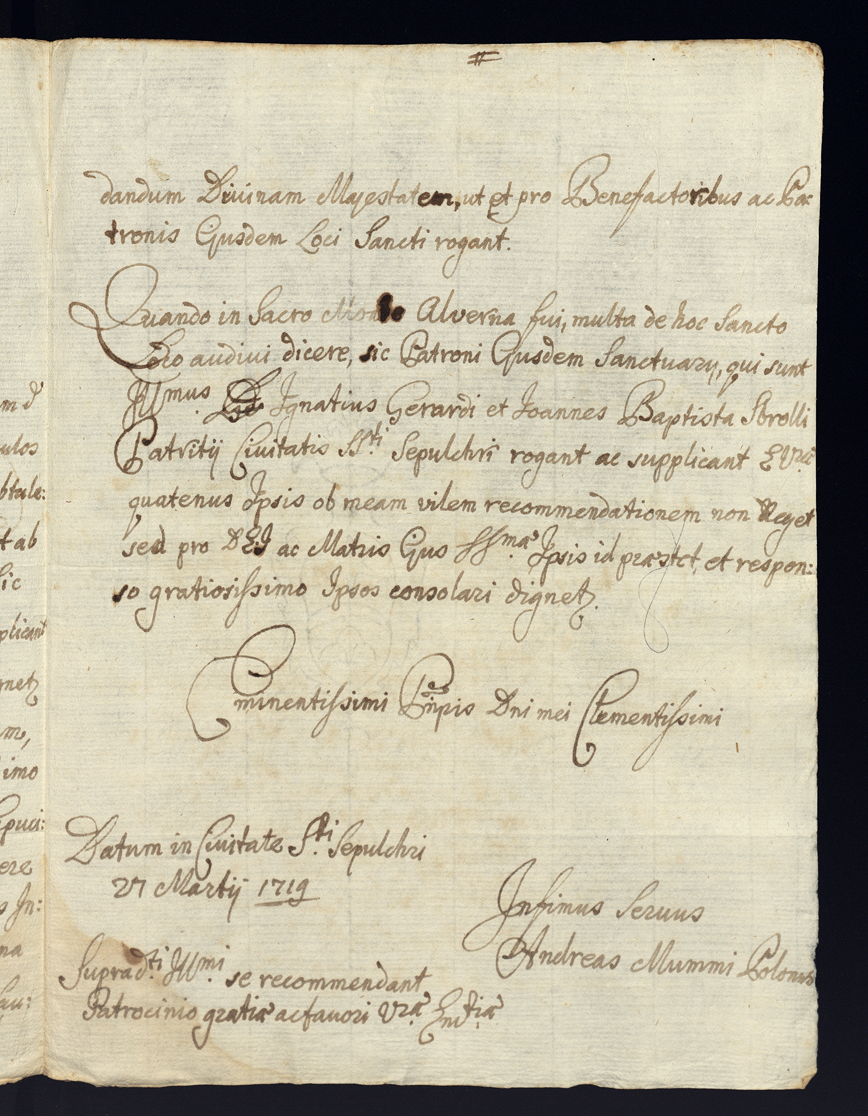 dandum Diuinam Majestatem, ut et pro Benefactoribus ac Pa:
tronis Ejusdem Loci Sancti rogant.
Quando in Sacro Monte Alverna fui, multa de hoc Sancto
Loco audiui dicere, sic Patroni Ejusdem Sanctuarij, qui sunt
Illmus Ignatius Gerardi et Joannes Baptista Sbrolli
Patritij Ciuitatis SSti Sepulchri rogant ac supplicant EVræ
quatenus Ipsis ob meam vilem recommendationem non Neget
sed pro DEI ac Matris Ejus SSmæ Ipsis id præstet, et respon:
so gratiosissimo Ipsos consolari dignetz.
Eminentissimi Pnpis Dni mei Clementissimi
Datum in Ciuitate Sti Sepulchri
27 Martij 1719
Infimus Seruus
Andreas Mummi Polonus
Supradti Illmi se recommendant
Patrocinio gratiæ ac fauori Vræ Endiæ
um d'
ulos
t ab
sic
plicant
gnetz
m,
imo
ere
s In:
na